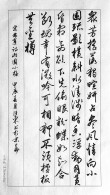 眾芳搖落獨暄妍占盡風情向小
園疏影橫斜水清淺暗香浮動月黃昏
霜禽欲下先偷眼粉蝶如知合
斷魂幸有微吟可相狎不須檀板
共金樽
山園小梅